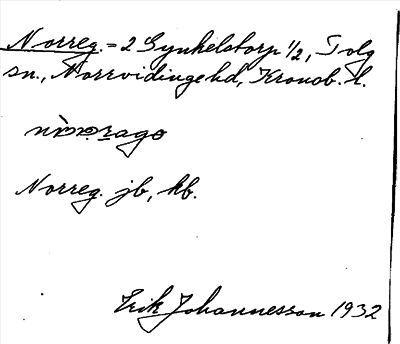 Norreg. = 2 Gynkelstorp 1/2, Tolg
sn., Norrvidinge hd, Kronob. l.
Norreg. jb, kb.
Erik Johannesson 1932